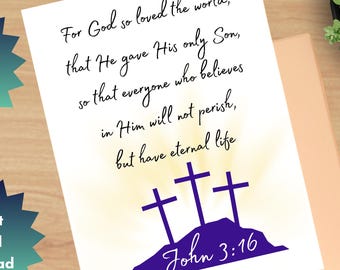 For God so loved the world,
that He gave His only Son,
so that everyone who believes
in Him will not perish,
but have eternal life
John 3:16